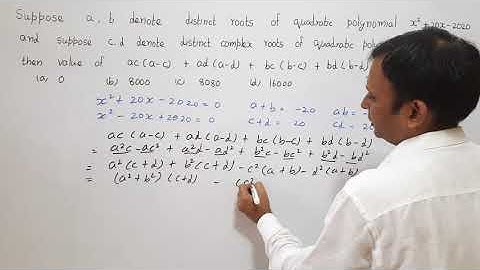 Suppose a, b denote distinct roots of quadratic polynomial x² + 20x - 2020
and suppose c, d denote distinct complex roots of quadratic
then value of ac(a-c) + ad(a-d) + bc(b-c) + bd(b-d)
(a) 0 (b) 8000 (c) 8080 (d) 16000
x² + 20x - 2020 = 0 a + b = -20 ab =
x² - 20x + 2020 = 0 c + d = 20 cd =
ac(a-c) + ad(a-d) + bc(b-c) + bd(b-d)
= a²c - ac² + a²d - ad² + b²c - bc² + b²d - bd²
= a²(c+d) + b²(c+d) - c²(a+b) - d²(a+b)
= (a² + b²)(c+d) - (c²